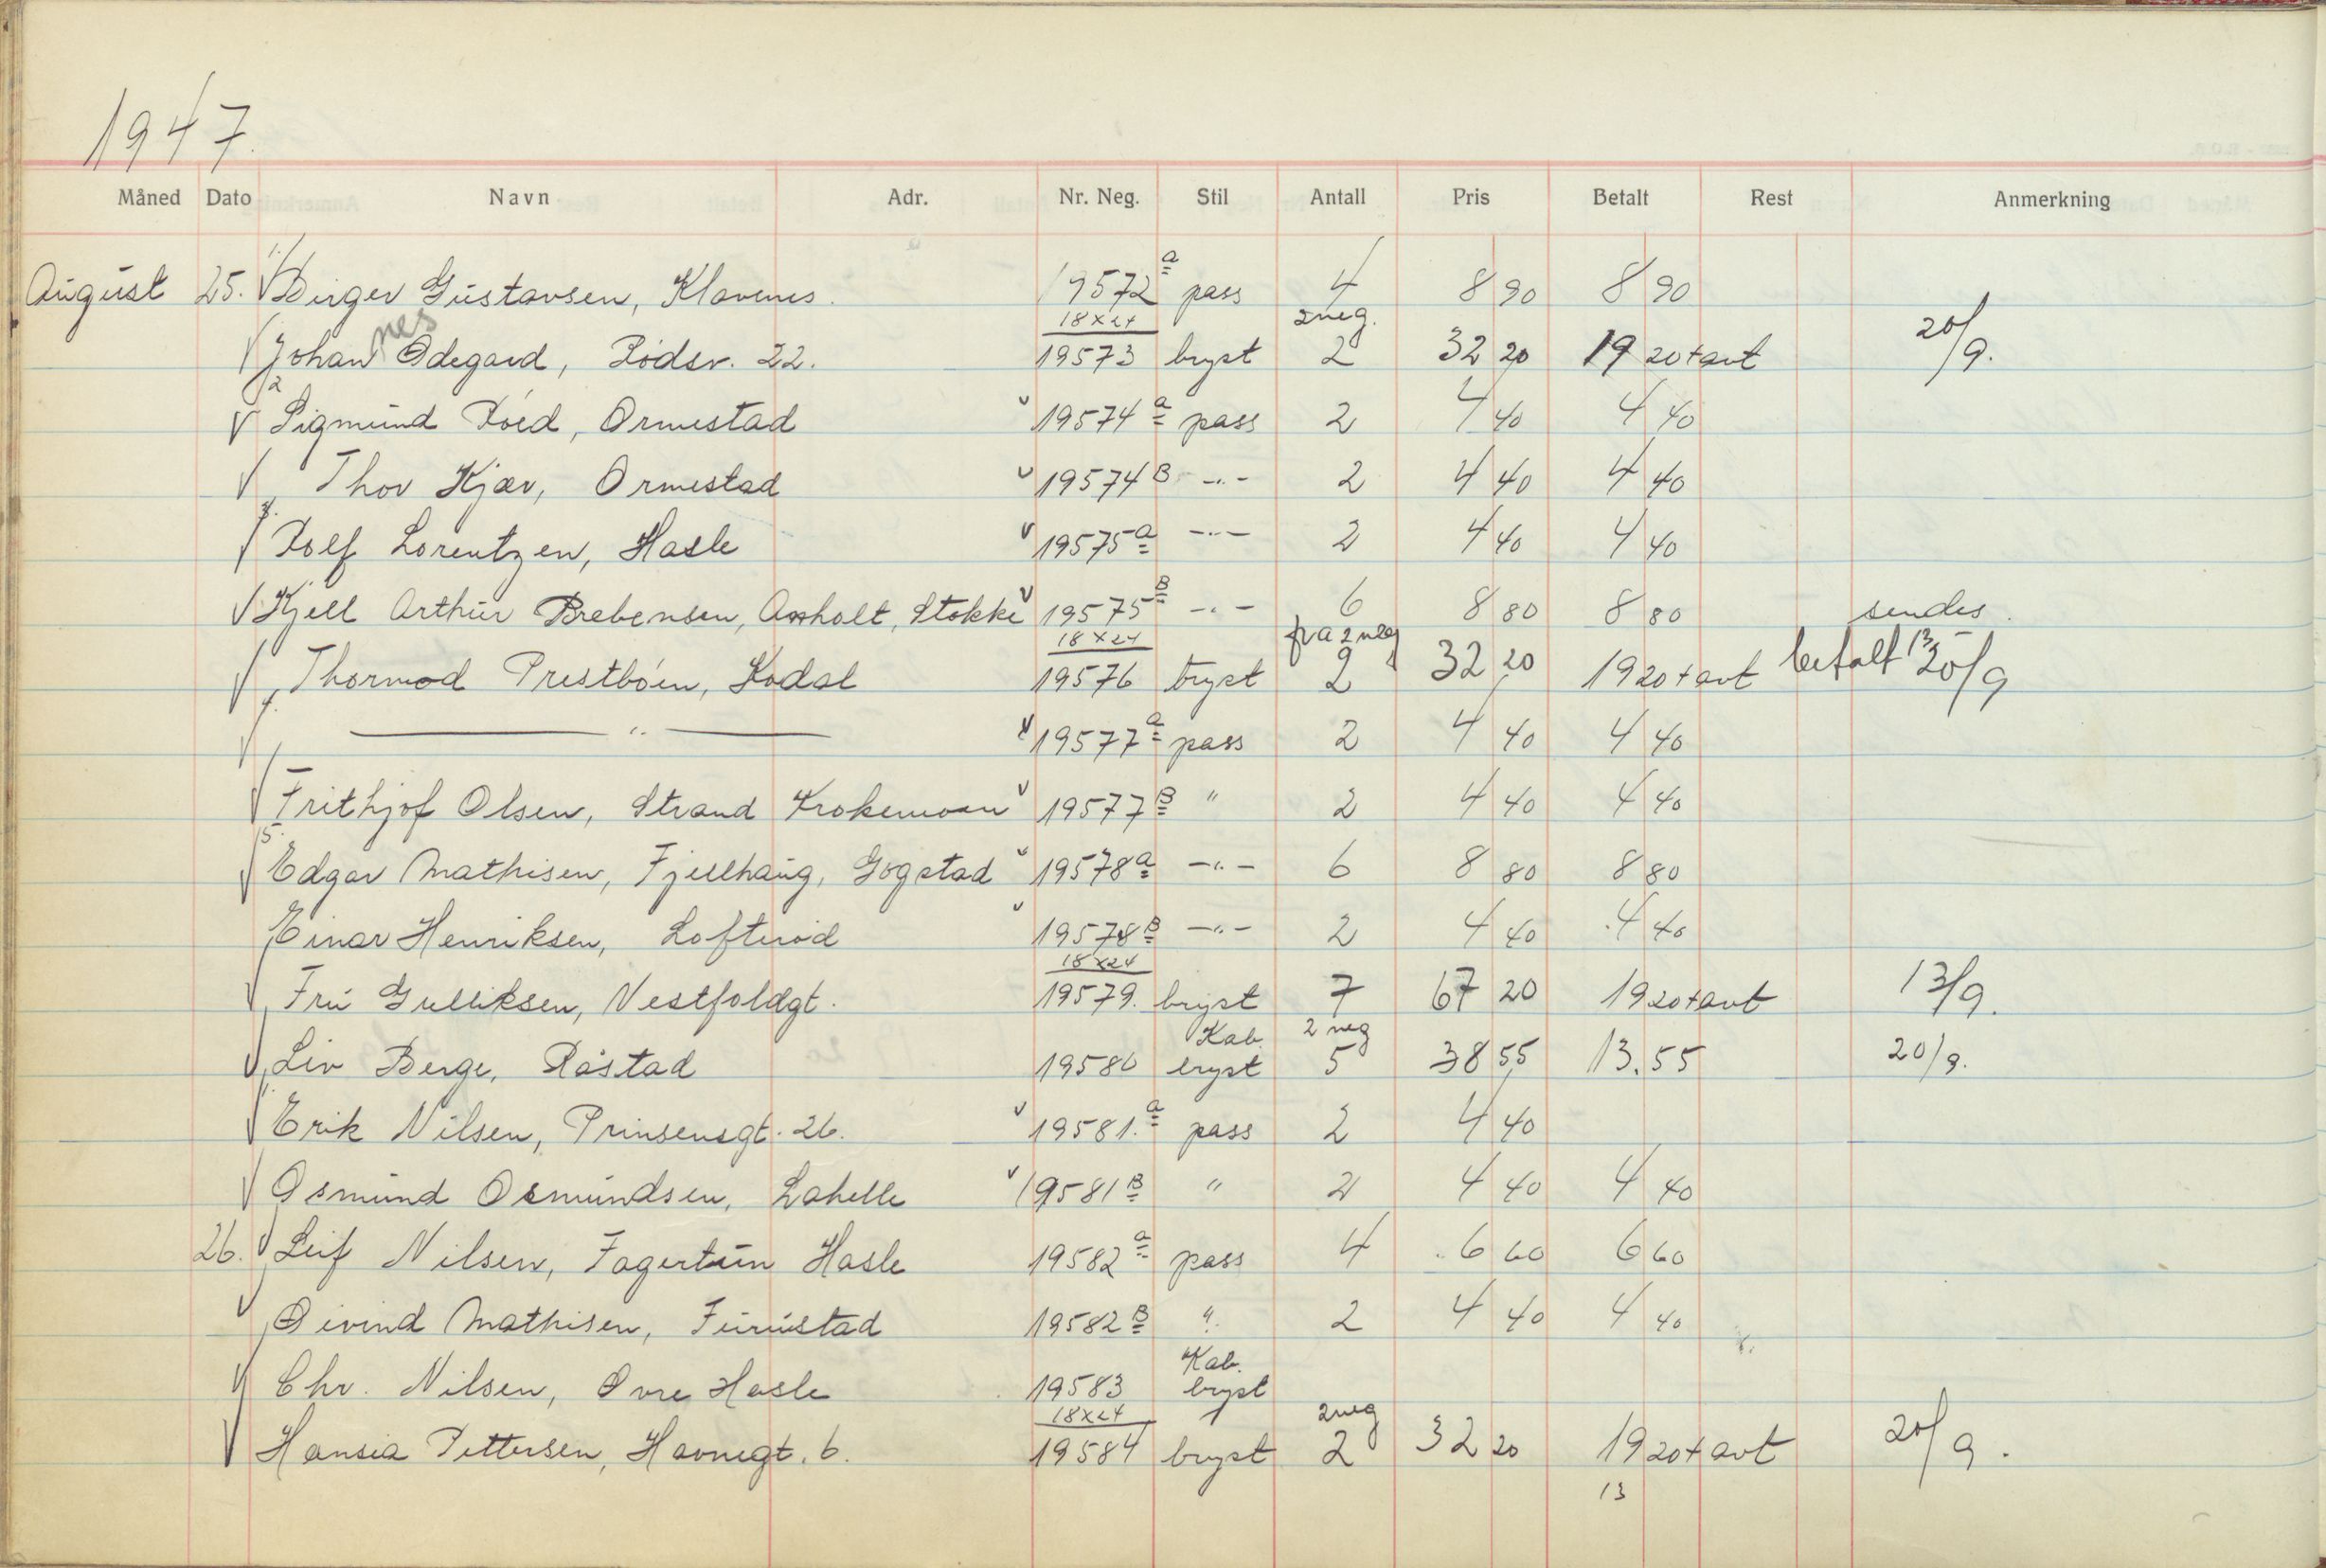 1947.
Måned Dato Navn Adr. Nr. Neg. Stil Antall Pris Betalt Rest Anmerkning
August 25. Birger Gustavsen, Klavenes. 19572 a pass 4 8 90 8 90
Johannes Ødegard, Rødsv. 22. 18x24 19573 bryst 2 neg. 2 32 20 19 20 + avt 20/9.
2 Sigmund Roed, Ormestad 19574 a pass 2 4 40 4 40
Thor Kjær, Ormestad 19574 B -"- 2 4 40 4 40
3. Rolf Lorentzen, Hasle 19575 a -"- 2 4 40 4 40
Kjell Arthur Brebensen, Anholt, Stokke 19575 B -"- 6 8 80 8 80 sendes.
Thormod Prestbøen, Kodal 18x24 19576 bryst fra 2 neg 2 32 20 19 20 + avt betalt 13 20/9
4. -"- 19577 a pass 2 4 40 4 40
Frithjof Olsen, Strand Krokemoen 19577 B " 2 4 40 4 40
5. Edgar Mathisen, Fjellhaug, Gogstad 19578 a -"- 6 8 80 8 80
Einar Henriksen, Lofterød 19578 B -"- 2 4 40 4 40
Fru Gulliksen, Vestfoldgt. 18x24 19579. bryst 7 67 20 19 20 + avt 13/9.
Liv Berge, Råstad 19580 Kab. bryst 2 neg 5 38 55 13.55 20/9.
Erik Nilsen, Prinsensgt. 26. 19581. a pass 2 4 40
Osmund Osmundsen, Lahelle 19581 B " 2 4 40 4 40
26. Leif Nilsen, Fagertun Hasle 19582 a pass 4 6 60 6 60
Øivind Mathisen, Furustad 19582 B " 2 4 40 4 40
Chr. Nilsen, Øvre Hasle 19583 Kab. bryst
Hansia Pettersen, Havnegt. 6. 18x24 19584 bryst 2 neg 2 32 20 19 20 + avt 20/9.
13